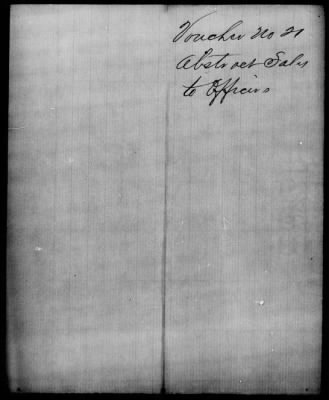 Voucher No 21
Abstract Sales
to Officers